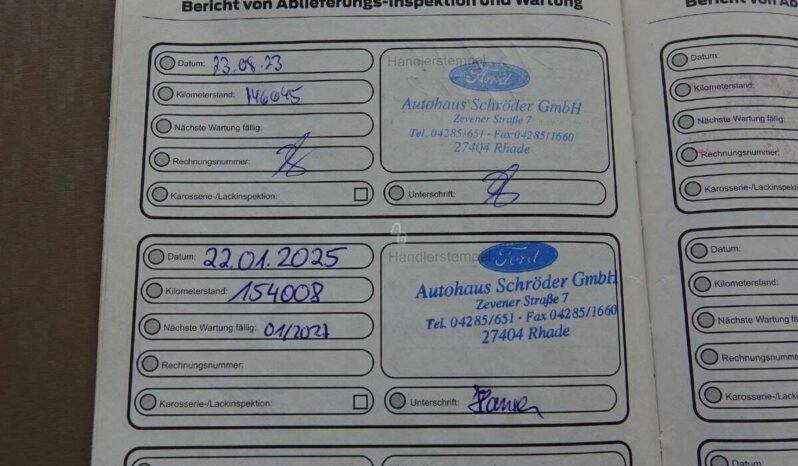 Bericht von Ablieferungs-Inspektion und Wartung
Datum: 23.08.23
Händlerstempel
Ford
Kilometerstand: 146045
Autohaus Schröder GmbH
Zevener Straße 7
Nächste Wartung fällig:
Tel. 04285/651 · Fax 04285/1660
27404 Rhade
Rechnungsnummer:
Karosserie-/Lackinspektion:
Unterschrift:
Datum: 22.01.2025
Händlerstempel
Ford
Kilometerstand: 154008
Autohaus Schröder GmbH
Zevener Straße 7
Nächste Wartung fällig: 01/2027
Tel. 04285/651 · Fax 04285/1660
27404 Rhade
Rechnungsnummer:
Karosserie-/Lackinspektion:
Unterschrift:
Bericht von Ab
Datum:
Kilometerstand:
Nächste Wartung fällig:
Rechnungsnummer:
Karosserie-/Lackinspe
Datum:
Kilometerstand:
Nächste Wartung fä
Rechnungsnumme
Karosserie-/Lacki
Datum: